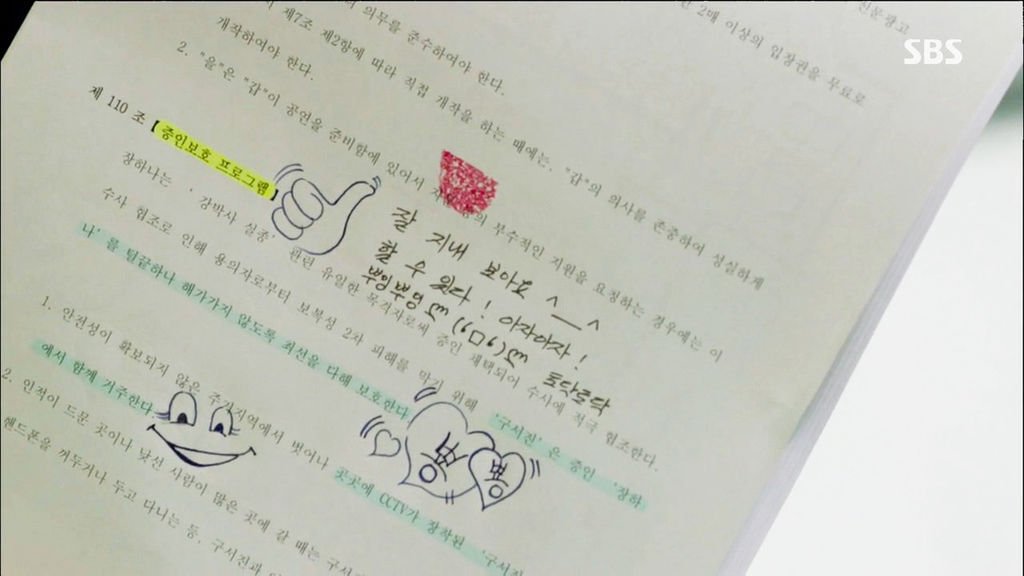 SBS
의 의무를 준수하여야 한다.
2매 이상의 입장권을 무료로
제7조 제2항에 따라 직접 개작을 하는 때에는, "갑"의 의사를 존중하여 성실하게
개작하여야 한다.
2. "을"은 "갑"이 공연을 준비함에 있어서 부수적인 지원을 요청하는 경우에는 이
제 110 조 【증인보호 프로그램】
장하나는 '강박사 실종' 관련 유일한 목격자로써 증인 채택되어 수사에 적극 협조한다.
수사 협조로 인해 용의자로부터 보복성 2차 피해를 막기 위해 '구서진'은 증인 '장하
나'를 털끝하나 해가가지 않도록 최선을 다해 보호한다
1. 안전성이 확보되지 않은 주거지역에서 벗어나 곳곳에 CCTV가 장착된 '구서진
에서 함께 거주한다
2. 인적이 드문 곳이나 낯선 사람이 많은 곳에 갈 때는 구서
핸드폰을 꺼두거나 두고 다니는 등, 구서진과
잘 지내 보아요 ^__^
할 수 있다! 아자아자!
뿌잉뿌잉 ლ(6ㅁ6)ლ 토닥토닥
뿅
뿅